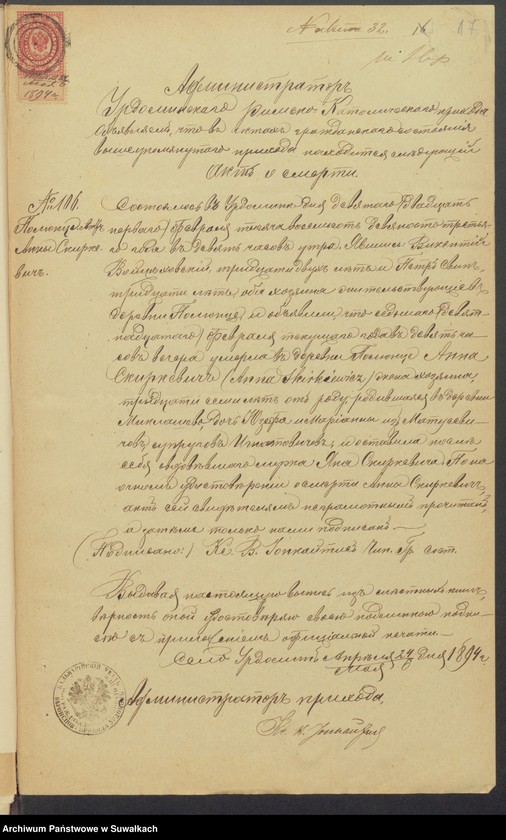 32.
17
1894 г
Администраторъ
Урдоминскаго Римско-Католическаго прихода
объявляетъ, что въ актахъ гражданскаго состоянія
вышеупомянутаго прихода находится слѣдующій
Актъ о смерти.
№ 106.
Анны Скирке-
вичъ.
Состоялось въ Урдоминѣ дня девятаго /двадцать
перваго/ Февраля тысяча восемьсотъ девяносто третья-
го года въ девять часовъ утра. Явились Викентій
Войцѣховскій, тридцати двухъ лѣтъ и Петръ
тридцати лѣтъ, оба хозяина жительствующіе въ
деревни и объявили что седьмаго /девят-
надцатаго/ Февраля текущаго года въ девять ча-
совъ вечера умерла въ деревни Анна
Скиркевичъ /Anna Skirkiewicz/ жена хозяина,
тридцати семи лѣтъ отъ роду, родившаяся въ деревни
дочь Юзефа и Маріанны изъ Матусеви-
човъ супруговъ Игнатовичовъ, и оставила послѣ
себя овдовѣвшаго мужа Яна Скиркевича. По на-
очномъ удостовѣреніи о смерти Анны Скиркевичъ,
актъ сей свидѣтелямъ неграмотнымъ прочитанъ,
а затѣмъ только нами подписанъ.—
(Подписано:) Кс. В. Чин. Гр. сост.
Выдавая настоящую выпись изъ книгъ,
вѣрность оной удостовѣряю своею подписью
съ приложеніемъ оффиціальной печати.—
село Урдоминъ, Апрѣля 24 дня 1894 г.
Мая 6
Администраторъ прихода,
Кс. В.
Archiwum Państwowe w Suwałkach